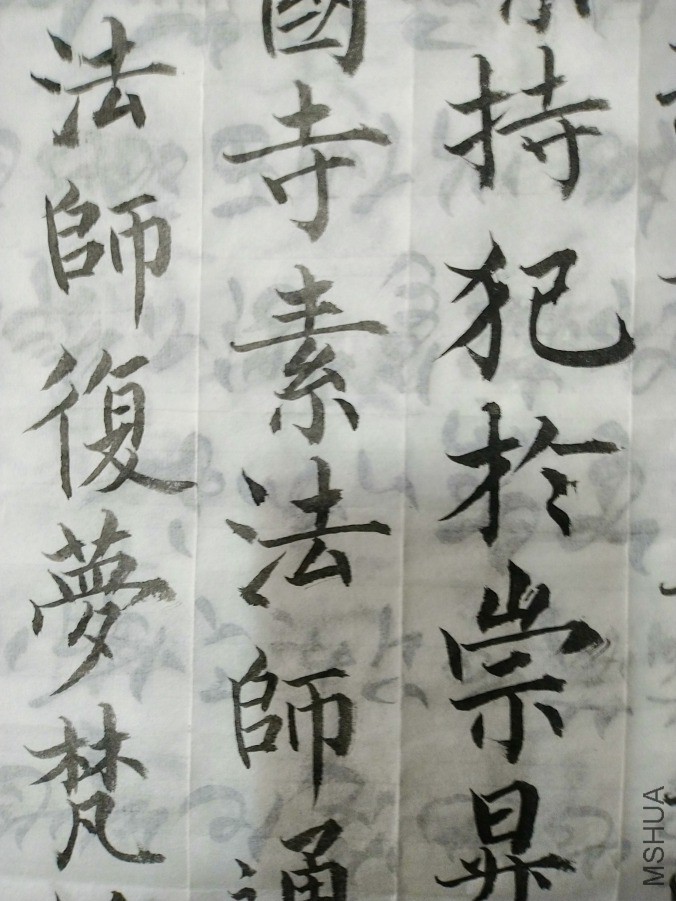 持犯於崇昇
國寺素法師通
法師復夢梵
MSHUA